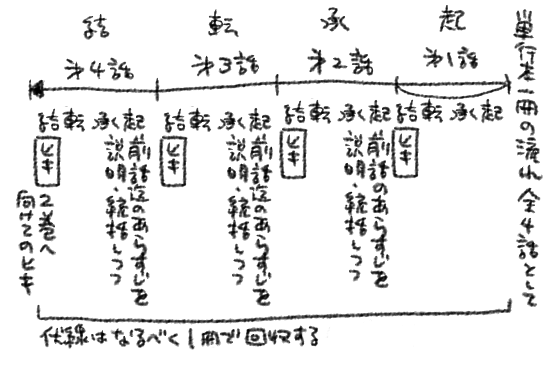 単行本一冊の流れ 全4話として
起
才1話
起承転結
ヒキ
承
才2話
起承転結
前話のあらすじを
説明・統括しつつ
ヒキ
転
才3話
起承転結
前話迄のあらすじを
説明・統括しつつ
ヒキ
結
才4話
起承転結
前話迄のあらすじを
説明・統括しつつ
ヒキ
2巻へ
向けてのヒキ
伏線はなるべく1冊で回収する